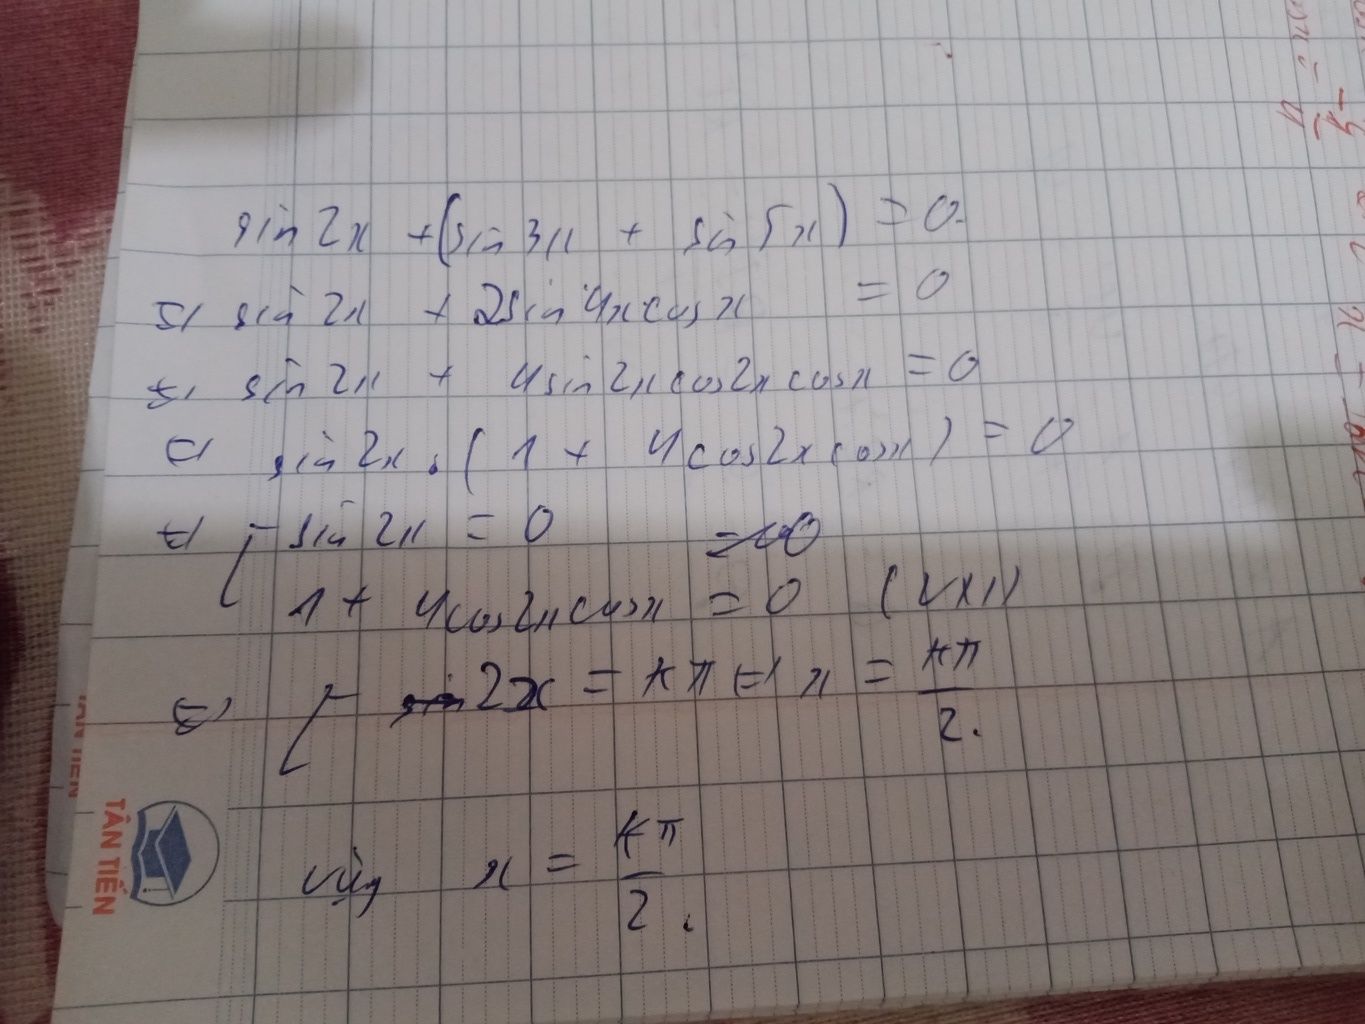 sin 2x + (sin 3x + sin 5x) = 0.
⇔ sin 2x + 2sin 4x cos x = 0
⇔ sin 2x + 4sin 2x cos 2x cos x = 0
⇔ sin 2x . (1 + 4cos 2x cos x) = 0
⇔ [ sin 2x = 0
1 + 4cos 2x cos x = 0
⇔ [ 2x = kπ ⇔ x = kπ/2.
TÂN TIẾN
vậy x = kπ/2.